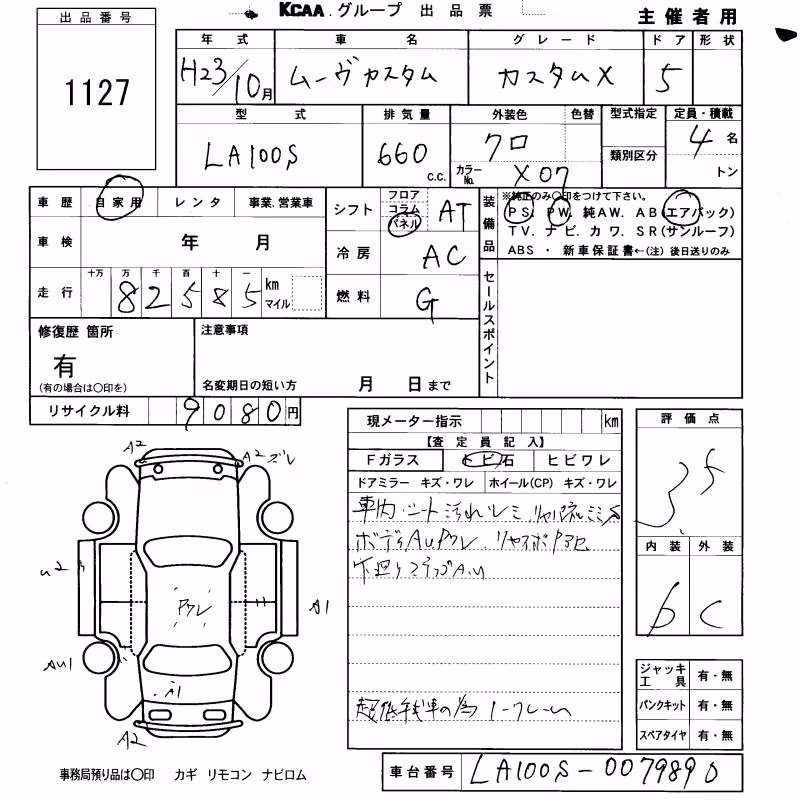 KCAA.グループ 出品票
主催者用
出品番号
1127
年式 車名 グレード ドア 形状
H23/10月 ムーヴカスタム カスタムX 5
型式 排気量 外装色 色替 型式指定 定員・積載
LA100S 660 c.c. クロ 類別区分 4名
カラーNo. X07 トン
車歴 自家用 レンタ 事業.営業車
シフト フロア コラム パネル AT
車検 年 月
冷房 AC
走行 十万 万 千 百 十 一
82585 km マイル
燃料 G
装備品
※純正のみ○印をつけて下さい。
PS. PW. 純AW. AB(エアバック)
TV. ナビ. カワ. SR(サンルーフ)
ABS ・ 新車保証書←(注) 後日送りのみ
セールスポイント
修復歴 箇所
有
(有の場合は○印を)
注意事項
名変期日の短い方 月 日まで
リサイクル料 9080円
現メーター指示 km
【査定員記入】
Fガラス トビ石 ヒビワレ
ドアミラー キズ・ワレ ホイール(CP) キズ・ワレ
車内・シート汚れ
ボディAu
下廻り
超低年式車の為 ノークレーム
評価点
3.5
内装 外装
b C
ジャッキ工具 有・無
パンクキット 有・無
スペアタイヤ 有・無
A2
A2 ズレ
u2
A1
AU1
A1
A2
事務局預り品は○印 カギ リモコン ナビロム
車台番号 LA100S-0079890